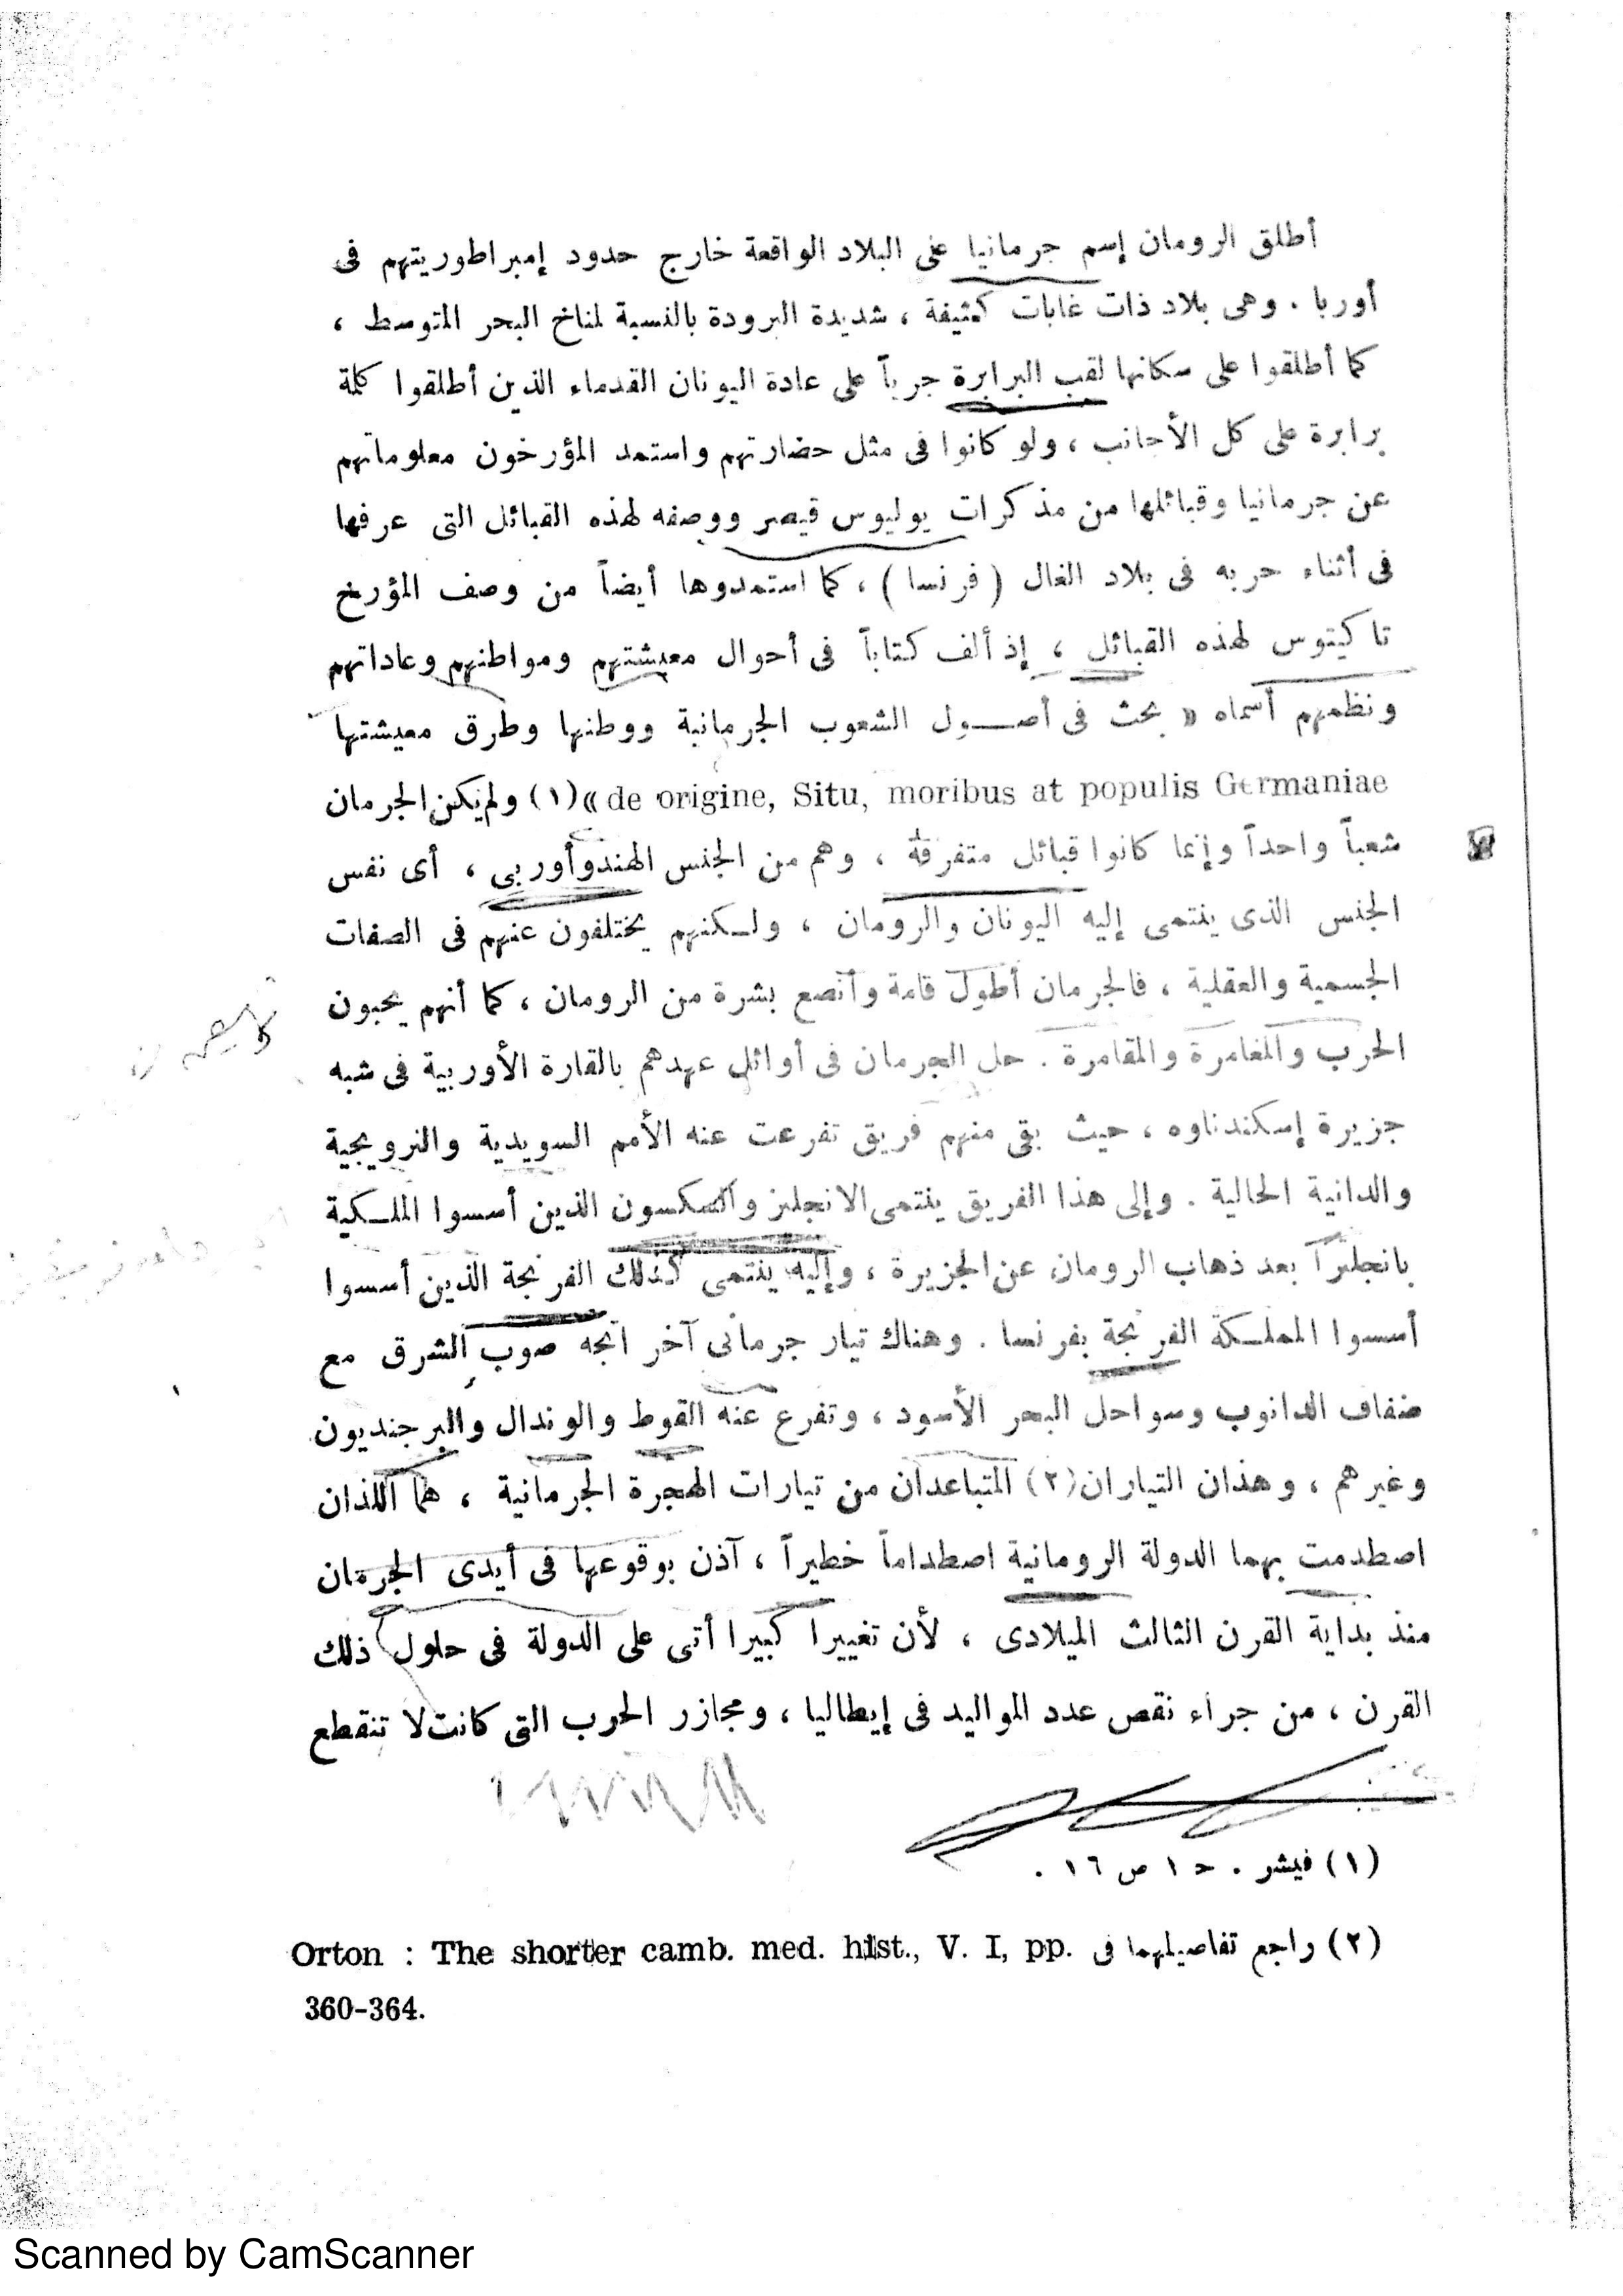 أطلق الرومان إسم جرمانيا على البلاد الواقعة خارج حدود إمبراطوريتهم فى
أوربا . وهى بلاد ذات غابات كثيفة ، شديدة البرودة بالنسبة لمناخ البحر المتوسط ،
كما أطلقوا على سكانها لقب البرابرة جرياً على عادة اليونان القدماء الذين أطلقوا كلمة
برابرة على كل الأجانب ، ولو كانوا فى مثل حضارتهم واستمد المؤرخون معلوماتهم
عن جرمانيا وقبائلها من مذكرات يوليوس قيصر ووصفه لهذه القبائل التى عرفها
فى أثناء حربه فى بلاد الغال ( فرنسا ) ، كما استمدوها أيضاً من وصف المؤرخ
تاكيتوس لهذه القبائل ، إذ ألف كتاباً فى أحوال معيشتهم ومواطنهم وعاداتهم
ونظمهم أسماه « بحث فى أصــول الشعوب الجرمانية ووطنها وطرق معيشتها
de origine, Situ, moribus at populis Germaniae »(١) ولم يكن الجرمان
شعباً واحداً وإنما كانوا قبائل متفرقة ، وهم من الجنس الهندوأوربى ، أى نفس
الجنس الذى ينتمى إليه اليونان والرومان ، ولكنهم يختلفون عنهم فى الصفات
الجسمية والعقلية ، فالجرمان أطول قامة وأنصع بشرة من الرومان ، كما أنهم يحبون
الحرب والمغامرة والمقامرة . حل الجرمان فى أوائل عهدهم بالقارة الأوربية فى شبه
جزيرة إسكندناوه ، حيث بقى منهم فريق تفرعت عنه الأمم السويدية والنرويجية
والدانية الحالية . وإلى هذا الفريق ينتمى الانجليز والسكسون الذين أسسوا الملكية
بانجلترا بعد ذهاب الرومان عن الجزيرة ، وإليه ينتمى كذلك الفرنجة الذين أسسوا
أسسوا المملكة الفرنجة بفرنسا . وهناك تيار جرمانى آخر اتجه صوب الشرق مع
ضفاف الدانوب وسواحل البحر الأسود ، وتفرع عنه القوط والوندال والبرجنديون
وغيرهم ، وهذان التياران(٢) المتباعدان من تيارات الهجرة الجرمانية ، هما اللذان
اصطدمت بهما الدولة الرومانية اصطداماً خطيراً ، آذن بوقوعها فى أيدى الجرمان
منذ بداية القرن الثالث الميلادى ، لأن تغييرا كبيرا أتى على الدولة فى حلول ذلك
القرن ، من جراء نقص عدد المواليد فى إيطاليا ، ومجازر الحرب التى كانت لا تنقطع
(١) فيشر . ج ١ ص ١٦ .
(٢) راجع تفاصيلهما فى Orton : The shorter camb. med. hist., V. I, pp.
360-364.
Scanned by CamScanner